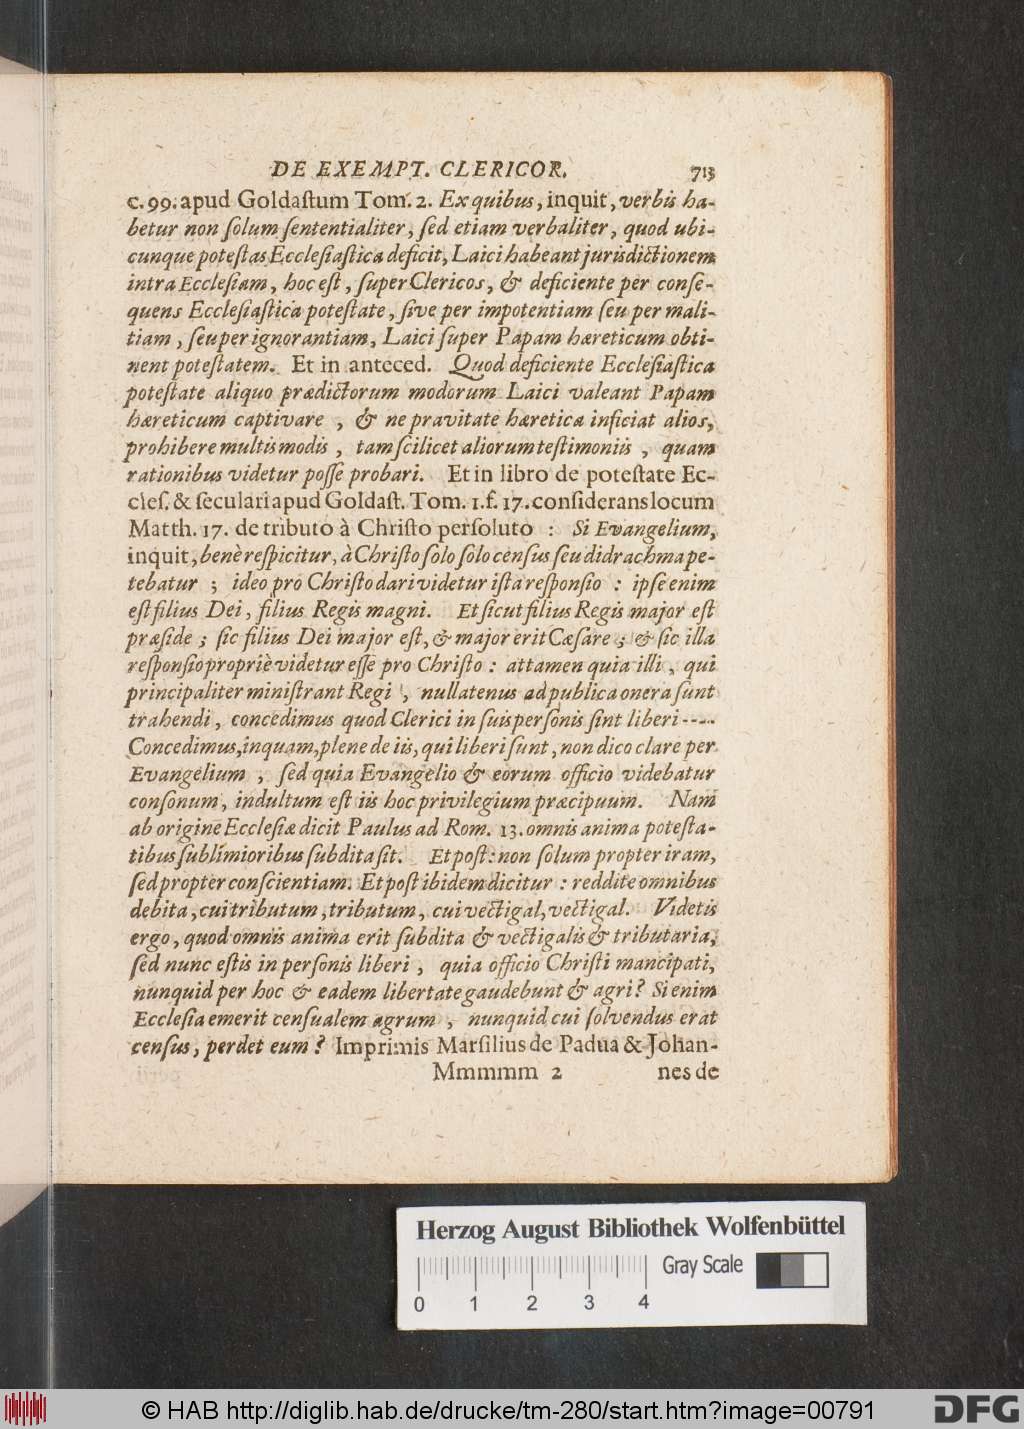 DE EXEMPT. CLERICOR. 713
c. 99. apud Goldaſtum Tom. 2. Ex quibus, inquit, verbis ha-
betur non ſolum ſententialiter, ſed etiam verbaliter, quod ubi-
cunque poteſtas Eccleſiaſtica deficit, Laici habeant jurisdictionem
intra Eccleſiam, hoc eſt, ſuper Clericos, & deficiente per conſe-
quens Eccleſiaſtica poteſtate, ſive per impotentiam ſeu per mali-
tiam, ſeu per ignorantiam, Laici ſuper Papam hæreticum obti-
nent poteſtatem. Et in anteced. Quod deficiente Eccleſiaſtica
poteſtate aliquo prædictorum modorum Laici valeant Papam
hæreticum captivare, & ne pravitate hæretica inficiat alios,
prohibere multis modis, tam ſcilicet aliorum teſtimoniis, quam
rationibus videtur poſſe probari. Et in libro de poteſtate Ec-
cleſ. & ſeculari apud Goldaſt. Tom. 1. f. 17. conſiderans locum
Matth. 17. de tributo à Chriſto perſoluto : Si Evangelium,
inquit, benè reſpicitur, à Chriſto ſolo ſolo cenſus ſeu didrachma pe-
tebatur ; ideo pro Chriſto dari videtur iſta reſponſio : ipſe enim
eſt filius Dei, filius Regis magni. Et ſicut filius Regis major eſt
præſide ; ſic filius Dei major eſt, & major erit Cæſare ; & ſic illa
reſponſio propriè videtur eſſe pro Chriſto : attamen quia illi, qui
principaliter miniſtrant Regi, nullatenus ad publica onera ſunt
trahendi, concedimus quod Clerici in ſuis perſonis ſint liberi ----
Concedimus, inquam, plene de iis, qui liberi ſunt, non dico clare per
Evangelium, ſed quia Evangelio & eorum officio videbatur
conſonum, indultum eſt iis hoc privilegium præcipuum. Nam
ab origine Eccleſiæ dicit Paulus ad Rom. 13. omnis anima poteſta-
tibus ſublimioribus ſubdita ſit. Et poſt: non ſolum propter iram,
ſed propter conſcientiam. Et poſt ibidem dicitur : reddite omnibus
debita, cui tributum, tributum, cui vectigal, vectigal. Videtis
ergo, quod omnis anima erit ſubdita & vectigalis & tributaria,
ſed nunc eſtis in perſonis liberi, quia officio Chriſti mancipati,
nunquid per hoc & eadem libertate gaudebunt & agri? Si enim
Eccleſia emerit cenſualem agrum, nunquid cui ſolvendus erat
cenſus, perdet eum? Imprimis Marſilius de Padua & Johan-
Mmmmm 2 nes de
Herzog August Bibliothek Wolfenbüttel
Gray Scale
0 1 2 3 4
© HAB http://diglib.hab.de/drucke/tm-280/start.htm?image=00791
DFG